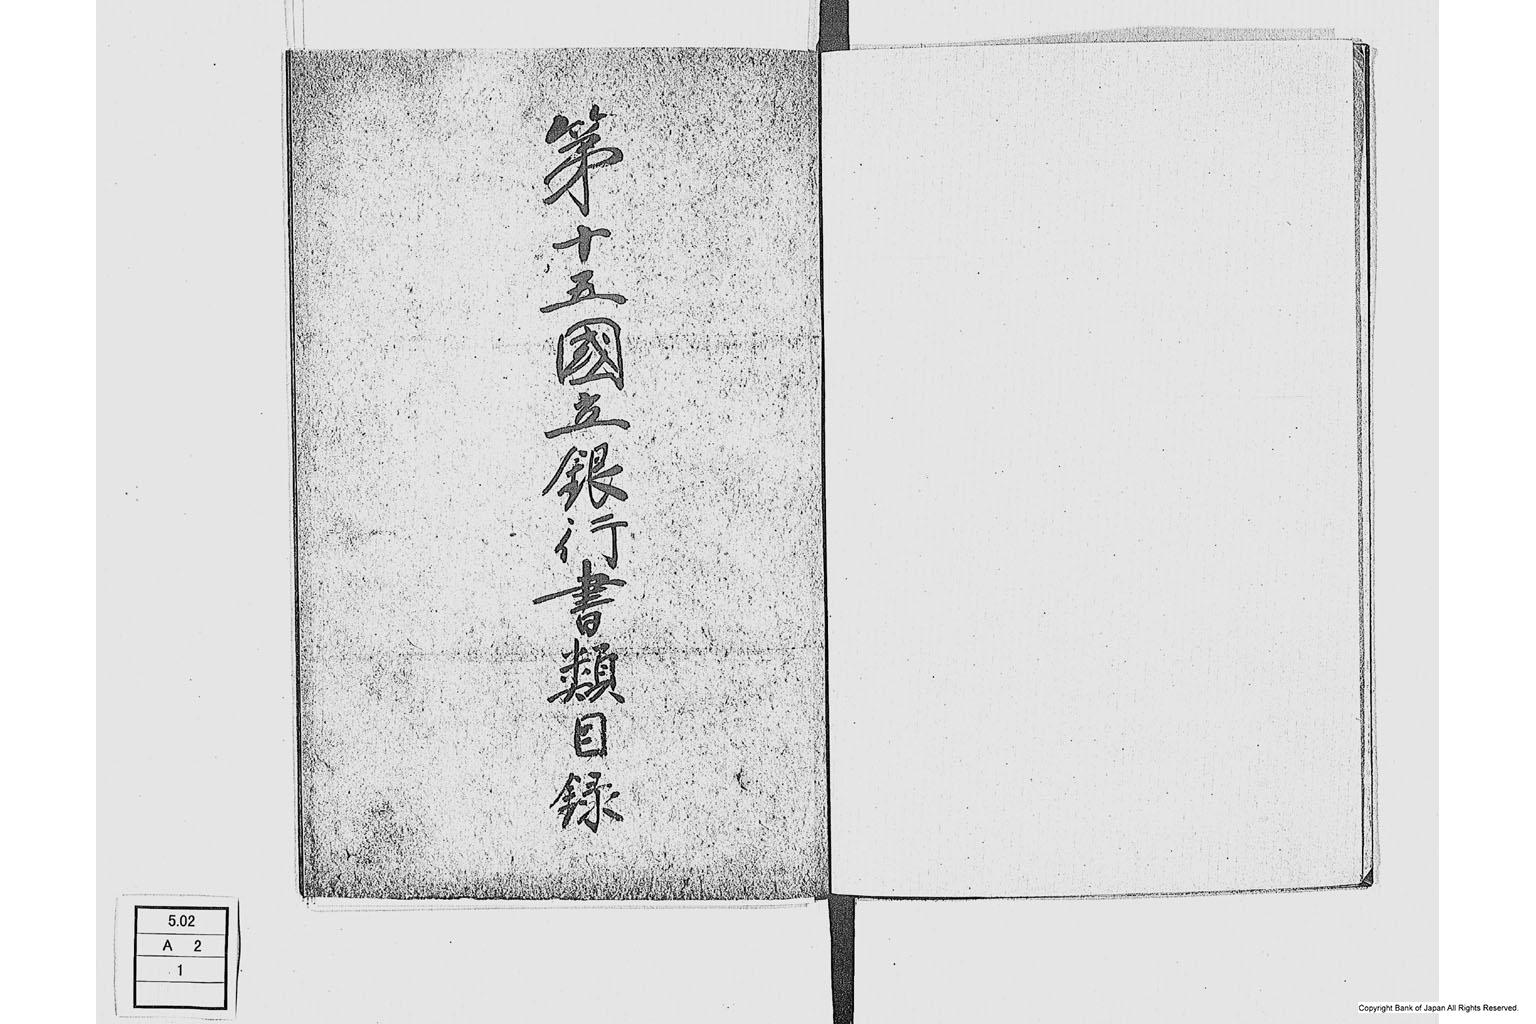 第十五國立銀行書類目録
5.02
A 2
1
Copyright Bank of Japan All Rights Reserved.